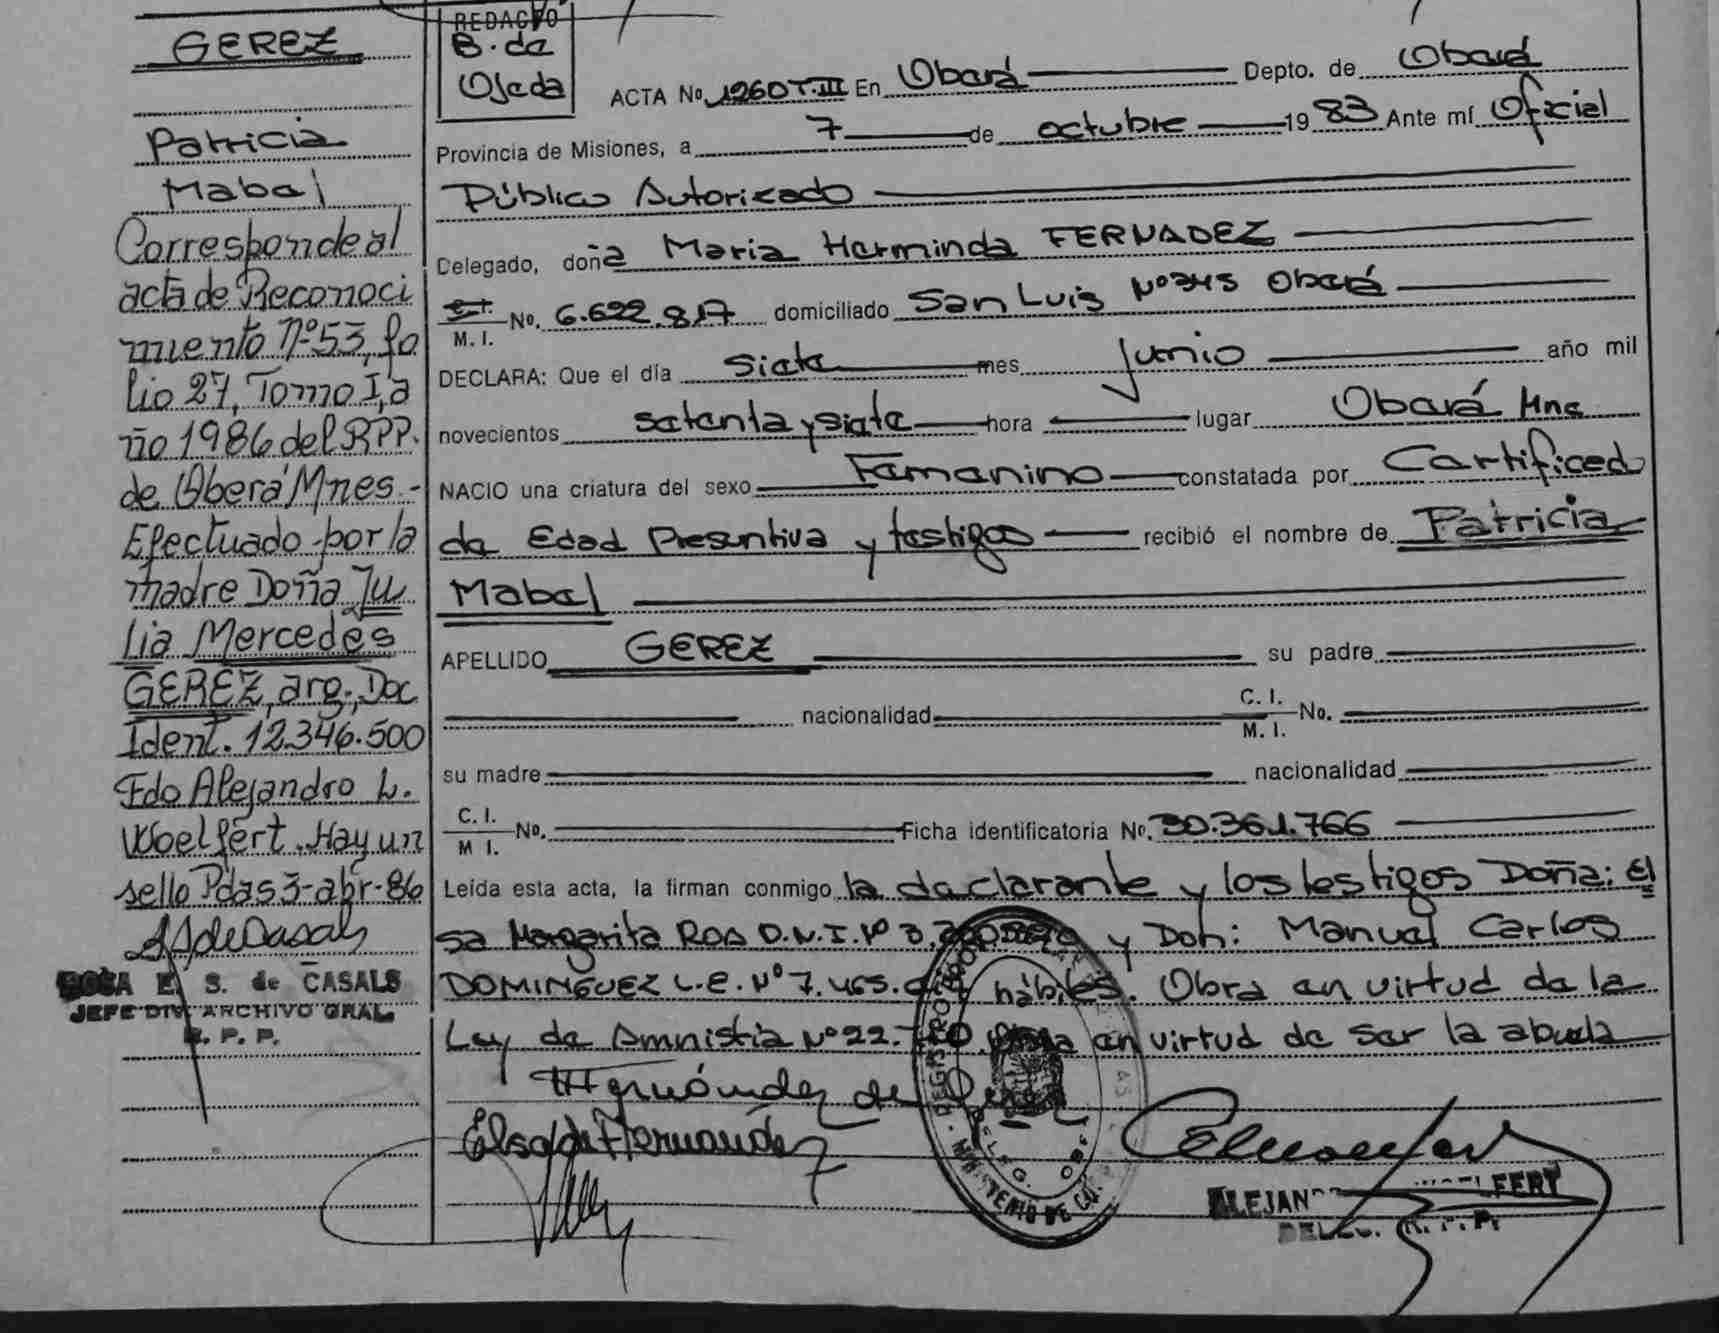 GEREZ
Patricia
Mabel
Corresponde al
acta de Reconoci
miento Nº 53, fo
lio 27, Tomo I, a
ño 1986 del RPP.
de Oberá Mnes.-
Efectuado por la
madre Doña Ju
lia Mercedes
GEREZ, arg., Doc
Ident. 12.346.500
Fdo Alejandro L.
Woelfert. Hay un
sello Pdas 3-abr-86
ROSA E. S. de CASALS
JEFE DIV. ARCHIVO GRAL.
R. P. P.
REDACTO
B. de
Ojeda
ACTA No. 1260 T.III En Oberá Depto. de Oberá
Provincia de Misiones, a 7 de octubre 19 83 Ante mí Oficial
Público Autorizado
Delegado, doña Maria Herminda FERNADEZ
C.I. M. I. No. 6.622.817 domiciliado San Luis Nº 345 Oberá
DECLARA: Que el día Siete mes Junio año mil
novecientos setenta y siete hora lugar Oberá Mnes
NACIO una criatura del sexo Femenino constatada por Certificado
de Edad Presuntiva y testigos recibió el nombre de Patricia
Mabel
APELLIDO GEREZ su padre
nacionalidad C. I. M. I. No.
su madre nacionalidad
C. I. M I. No. Ficha identificatoria No. 30.361.766
Leída esta acta, la firman conmigo la declarante y los testigos Doña: El
sa Margarita ROA D.N.I. Nº 3. y Don: Manuel Carlos
DOMINGUEZ L.E. Nº 7.465. hábiles. Obra en virtud de la
Ley de Amnistia Nº 22. en virtud de ser la abuela
Elsa de Hernández
REGISTRO PROV
DELEG. OBERA
MINISTERIO DE
ALEJAN LFERT
DELEG. R. P. P.